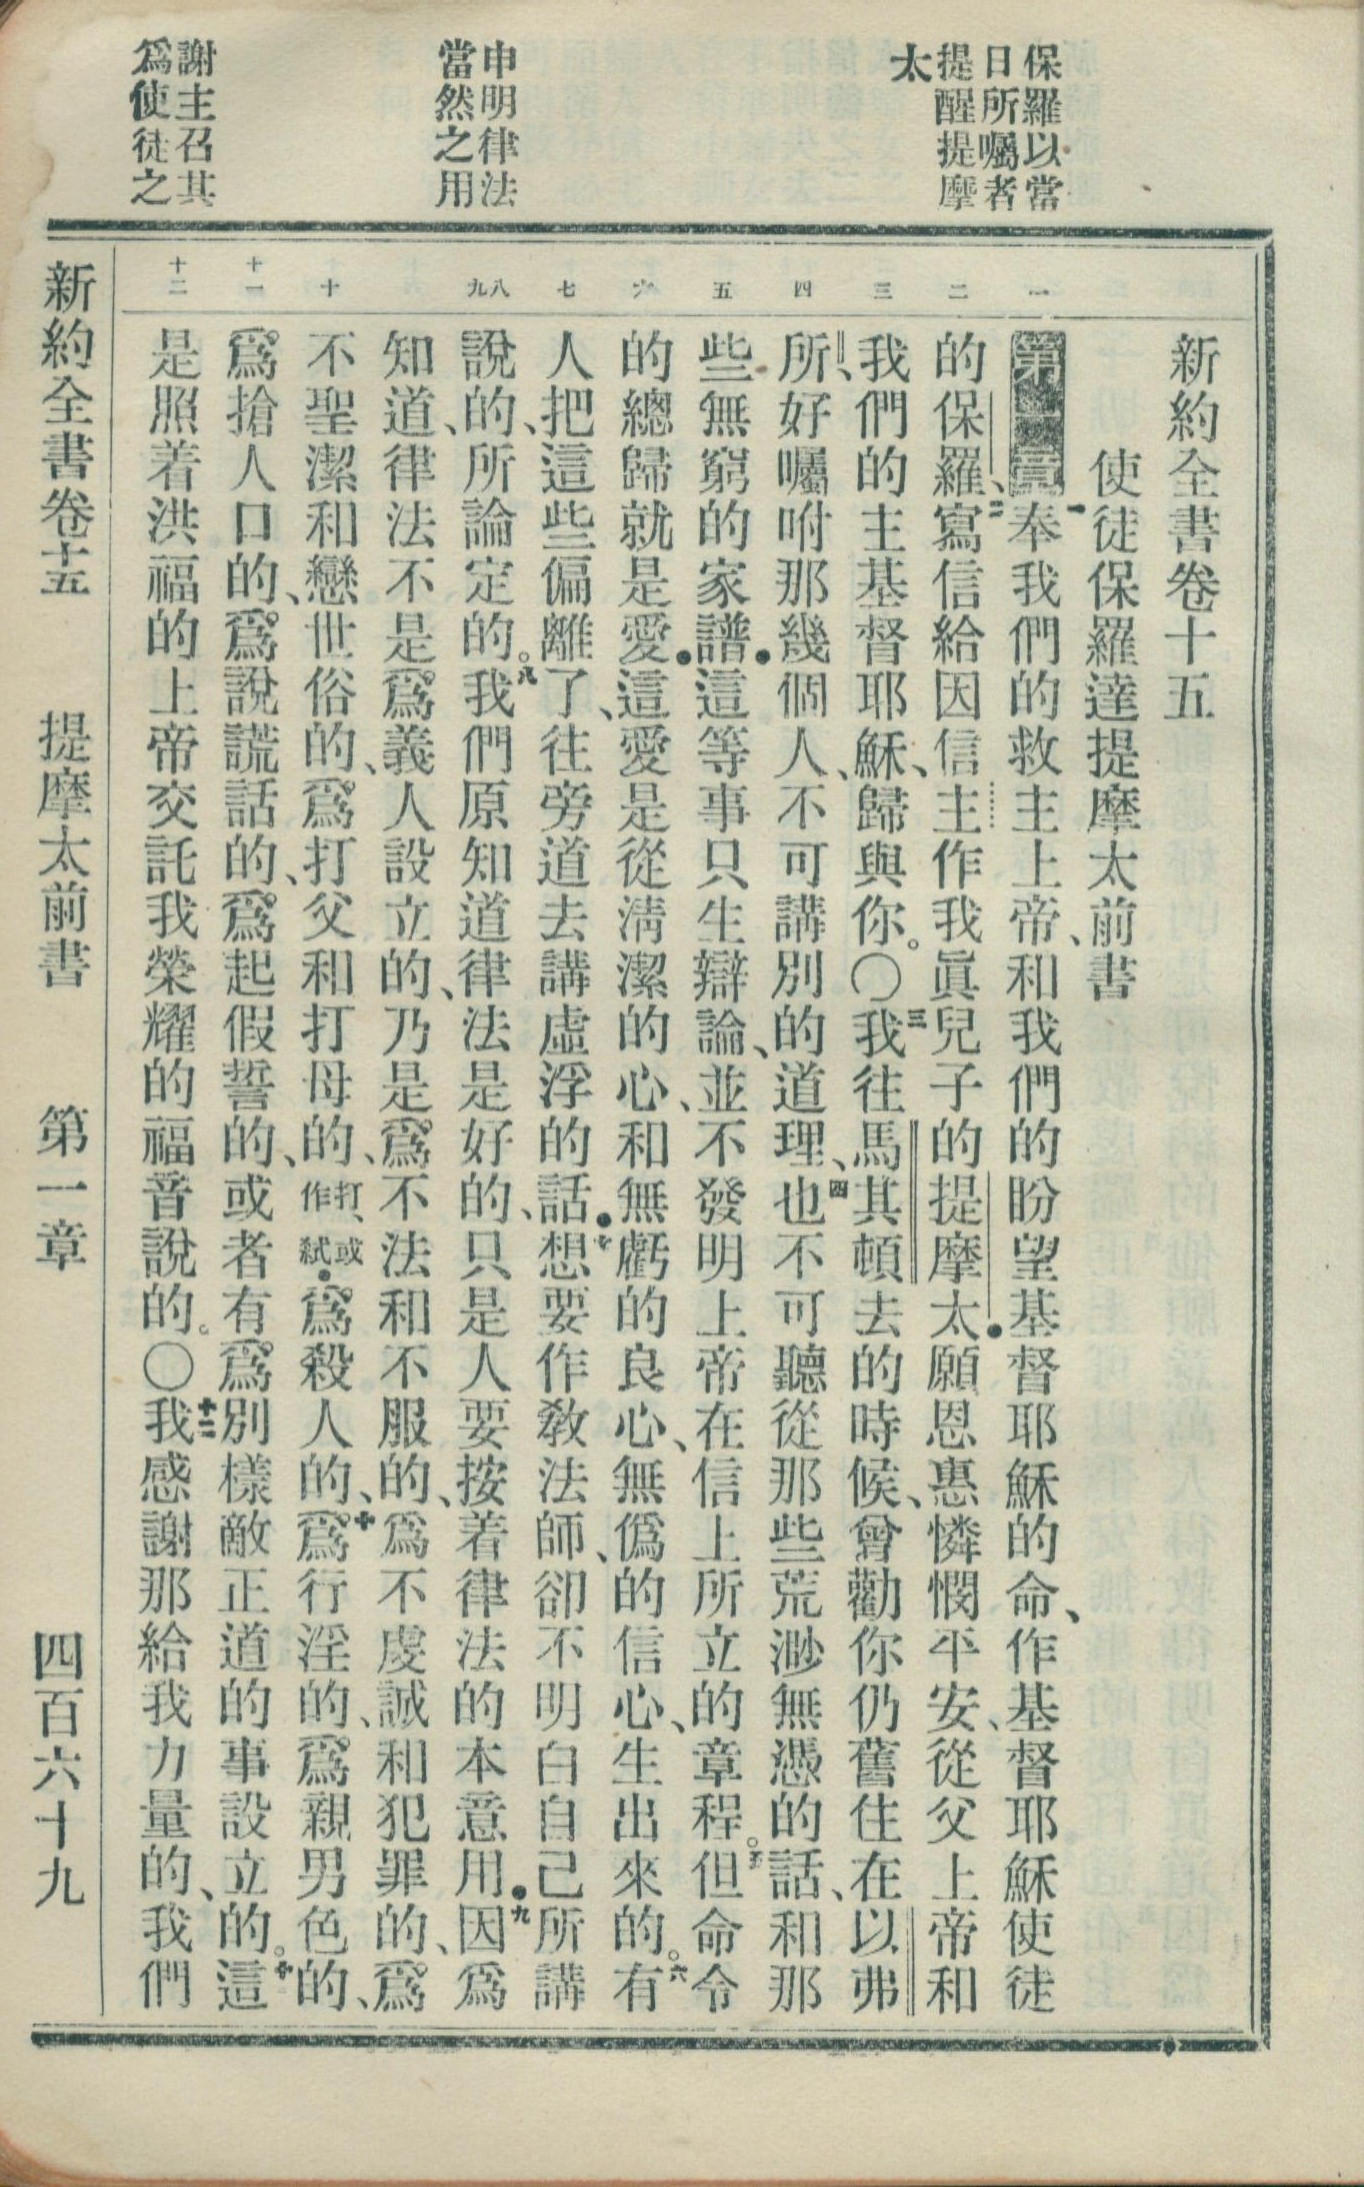 保羅以當
日所囑者
提醒提摩
太
申明律法
當然之用
謝主召其
爲使徒之
一
二
三
四
五
六
七
八
九
十
十一
十二
新約全書卷十五
使徒保羅達提摩太前書
第一章一奉我們的救主上帝、和我們的盼望基督耶穌的命、作基督耶穌使徒
的保羅、二寫信給因信主作我眞兒子的提摩太●願恩惠憐憫平安、從父上帝和
我們的主基督耶穌、歸與你。〇三我往馬其頓去的時候、曾勸你仍舊住在以弗
所、好囑咐那幾個人、不可講別的道理、四也不可聽從那些荒渺無憑的話、和那
些無窮的家譜●這等事只生辯論、並不發明上帝在信上所立的章程。五但命令
的總歸就是愛●這愛是從淸潔的心、和無虧的良心、無僞的信心、生出來的。六有
人把這些偏離了、往旁道去講虛浮的話●七想要作敎法師、卻不明白自己所講
說的、所論定的。八我們原知道律法是好的、只是人要按着律法的本意用●九因爲
知道、律法不是爲義人設立的、乃是爲不法和不服的、爲不虔誠和犯罪的、爲
不聖潔和戀世俗的、爲打父和打母的、打、或作弒●爲殺人的、十爲行淫的、爲親男色的、
爲搶人口的、爲說謊話的、爲起假誓的、或者有爲別樣敵正道的事設立的。十一這
是照着洪福的上帝交託我榮耀的福音說的。〇十二我感謝那給我力量的、我們
新約全書卷十五 提摩太前書 第一章 四百六十九